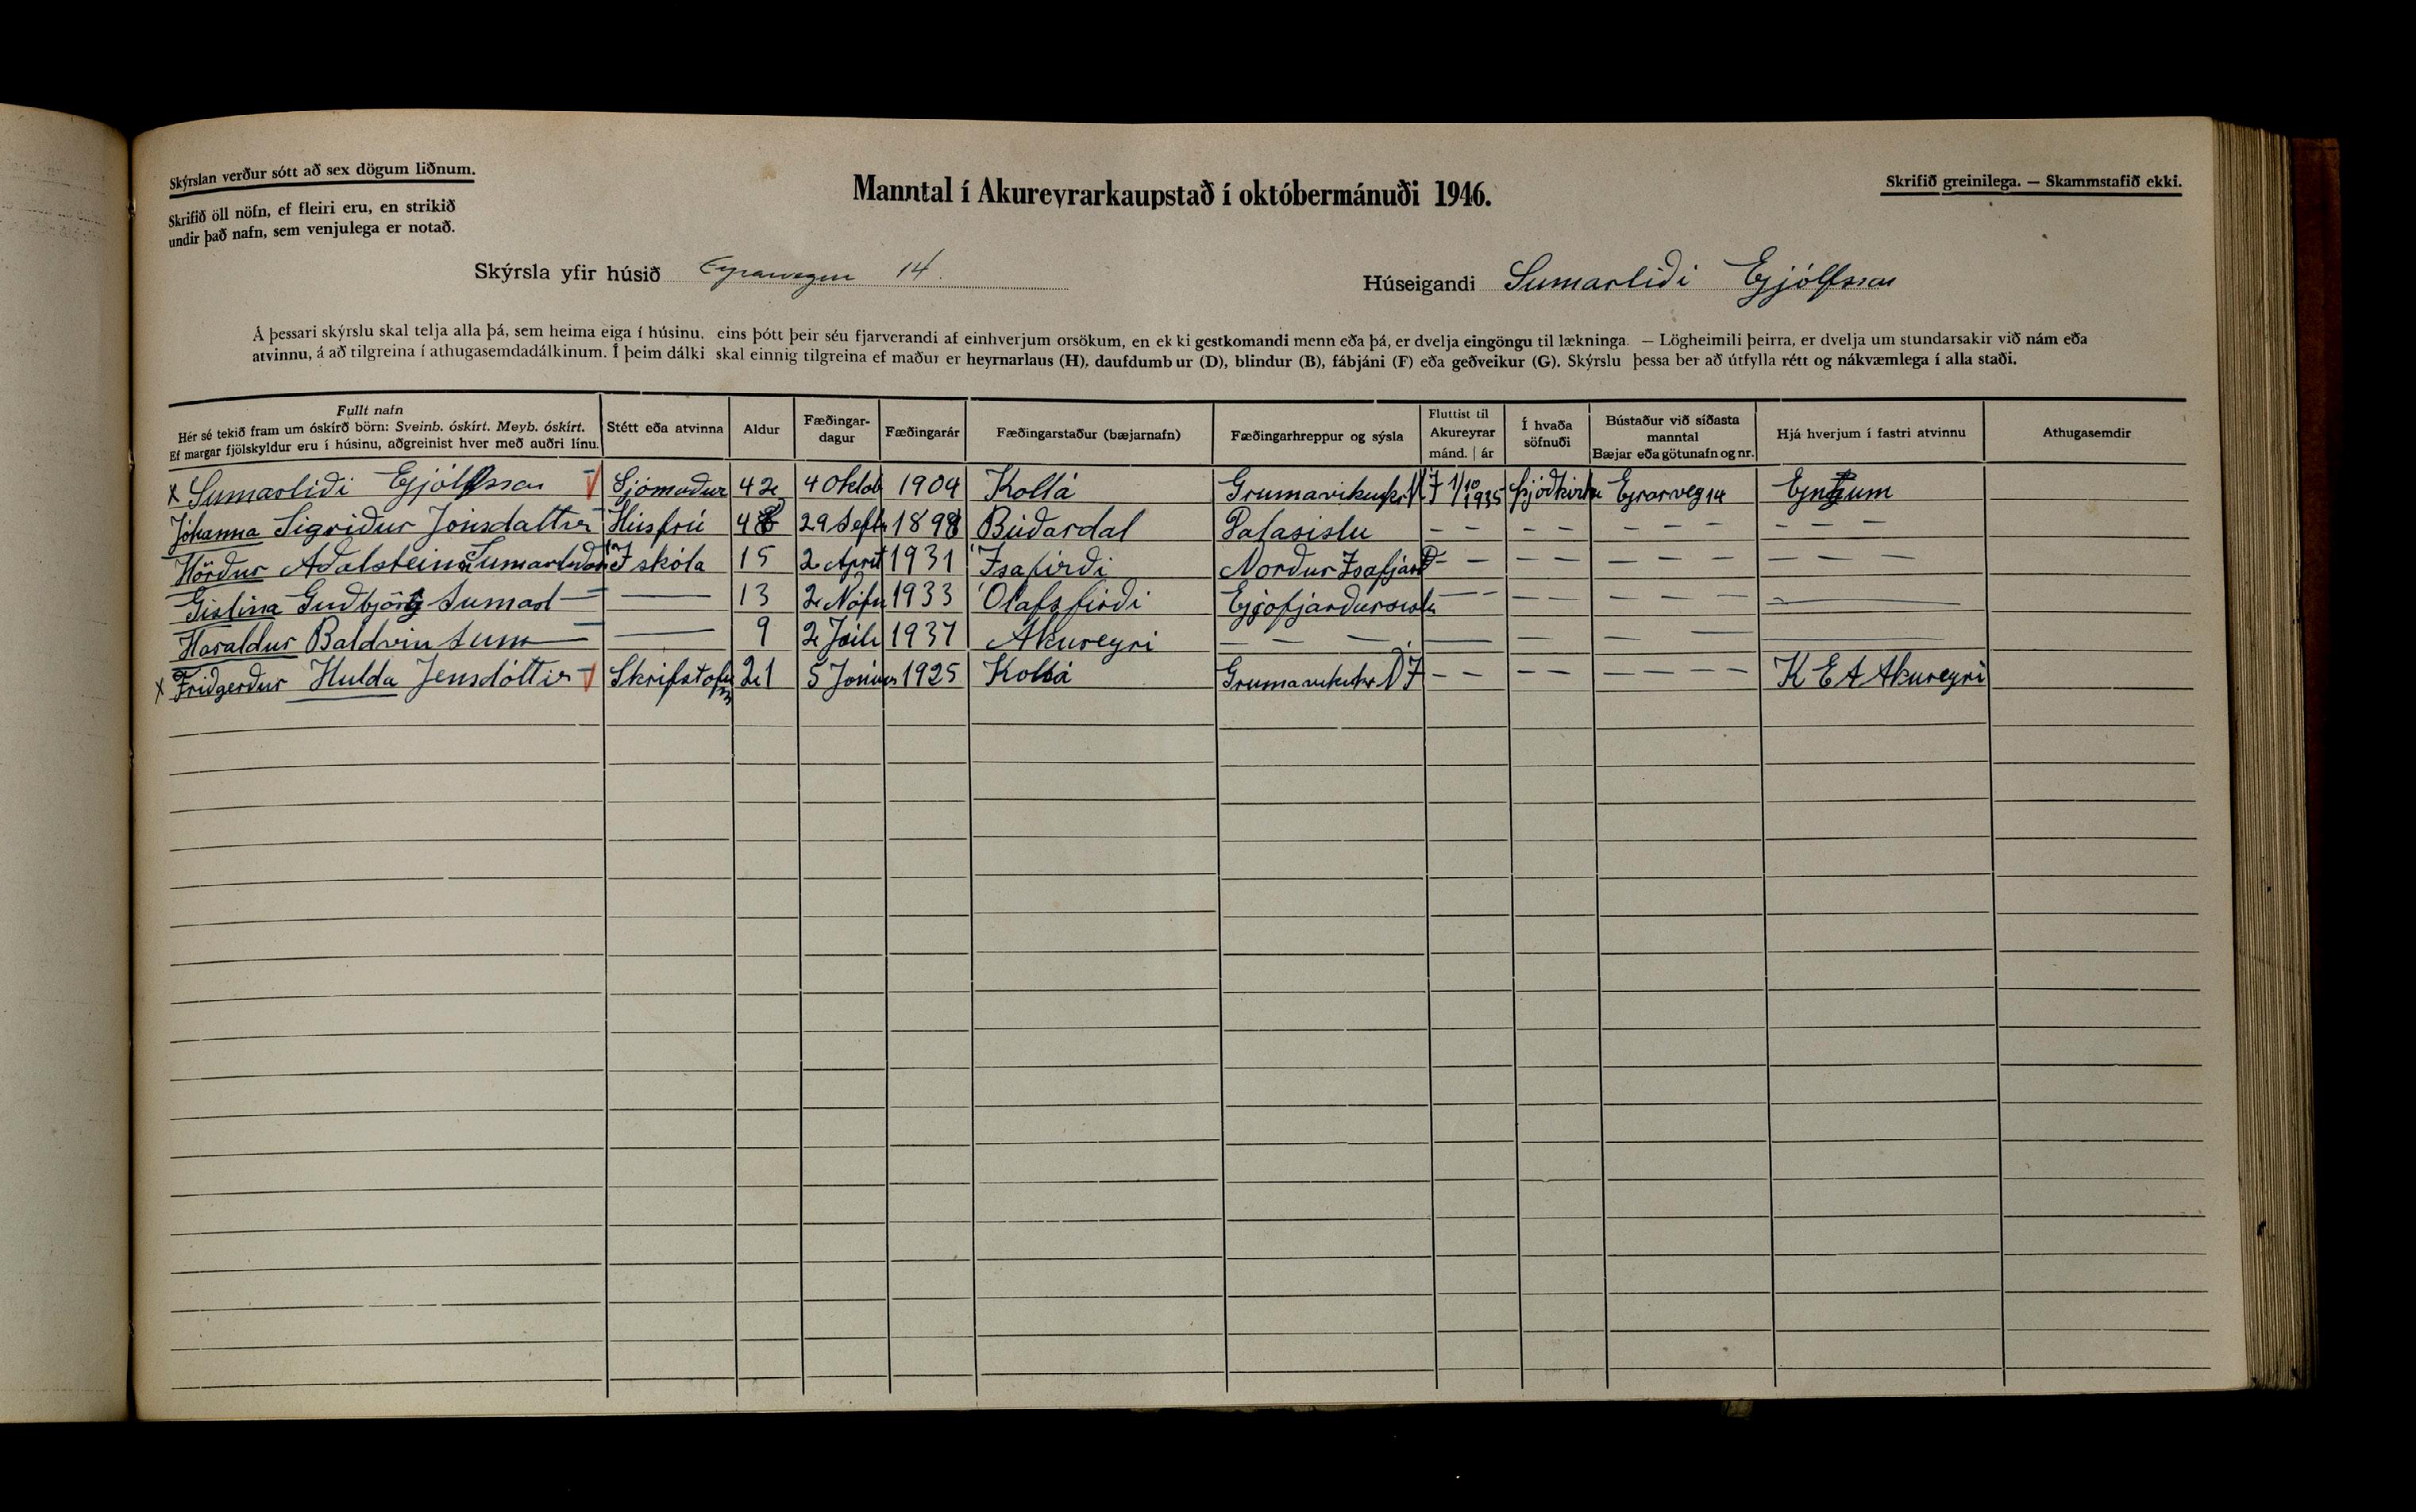 Skýrslan verður sótt að sex dögum liðnum.
Skrifið öll nöfn, ef fleiri eru, en strikið
undir það nafn, sem venjulega er notað.
Manntal í Akureyrarkaupstað í októbermánuði 1946.
Skrifið greinilega. — Skammstafið ekki.
Skýrsla yfir húsið Eyrarvegur 14.
Húseigandi Sumarliði Eyjólfsson
Á þessari skýrslu skal telja alla þá, sem heima eiga í húsinu, eins þótt þeir séu fjarverandi af einhverjum orsökum, en ekki gestkomandi menn eða þá, er dvelja eingöngu til lækninga. — Lögheimili þeirra, er dvelja um stundarsakir við nám eða
atvinnu, á að tilgreina í athugasemdadálkinum. Í þeim dálki skal einnig tilgreina ef maður er heyrnarlaus (H), daufdumbur (D), blindur (B), fábjáni (F) eða geðveikur (G). Skýrslu þessa ber að útfylla rétt og nákvæmlega í alla staði.
Fullt nafn
Hér sé tekið fram um óskírð börn: Sveinb. óskírt. Meyb. óskírt.
Ef margar fjölskyldur eru í húsinu, aðgreinist hver með auðri línu.
Stétt eða atvinna
Aldur
Fæðingar-
dagur
Fæðingarár
Fæðingarstaður (bæjarnafn)
Fæðingarhreppur og sýsla
Fluttist til
Akureyrar
mánd. | ár
Í hvaða
söfnuði
Bústaður við síðasta
manntal
Bæjar eða götunafn og nr.
Hjá hverjum í fastri atvinnu
Athugasemdir
x Sumarliði Eyjólfsson Sjómaður 42 4 Oktob 1904 Kollá Grunnavikurhr N Í 1/10 1935 Þjóðkirkju Eyrarveg 14
Jóhanna Sigríður Jónsdóttir Húsfrú 48 29 Sept 1898 Búðardal Dalasislu — — — — — — — — — —
Hörður Aðalsteinn Sumarliðason Í skóla 15 2 April 1931 Ísafirði Norður Ísafjard — — — — — — — — — —
Gislina Guðbjörg Sumarl — 13 2 Nófn 1933 Ólafsfirði Eyjofjarðarsislu — — — — — — — —
Haraldur Baldvin Sum — 9 2 Júili 1937 Akureyri — — — — — — — —
x Friðgerður Hulda Jensdóttir Skrifstofu 21 5 Janúar 1925 Kollá Grunnavikurhr N Í — — — — — — — K E A Akureyri